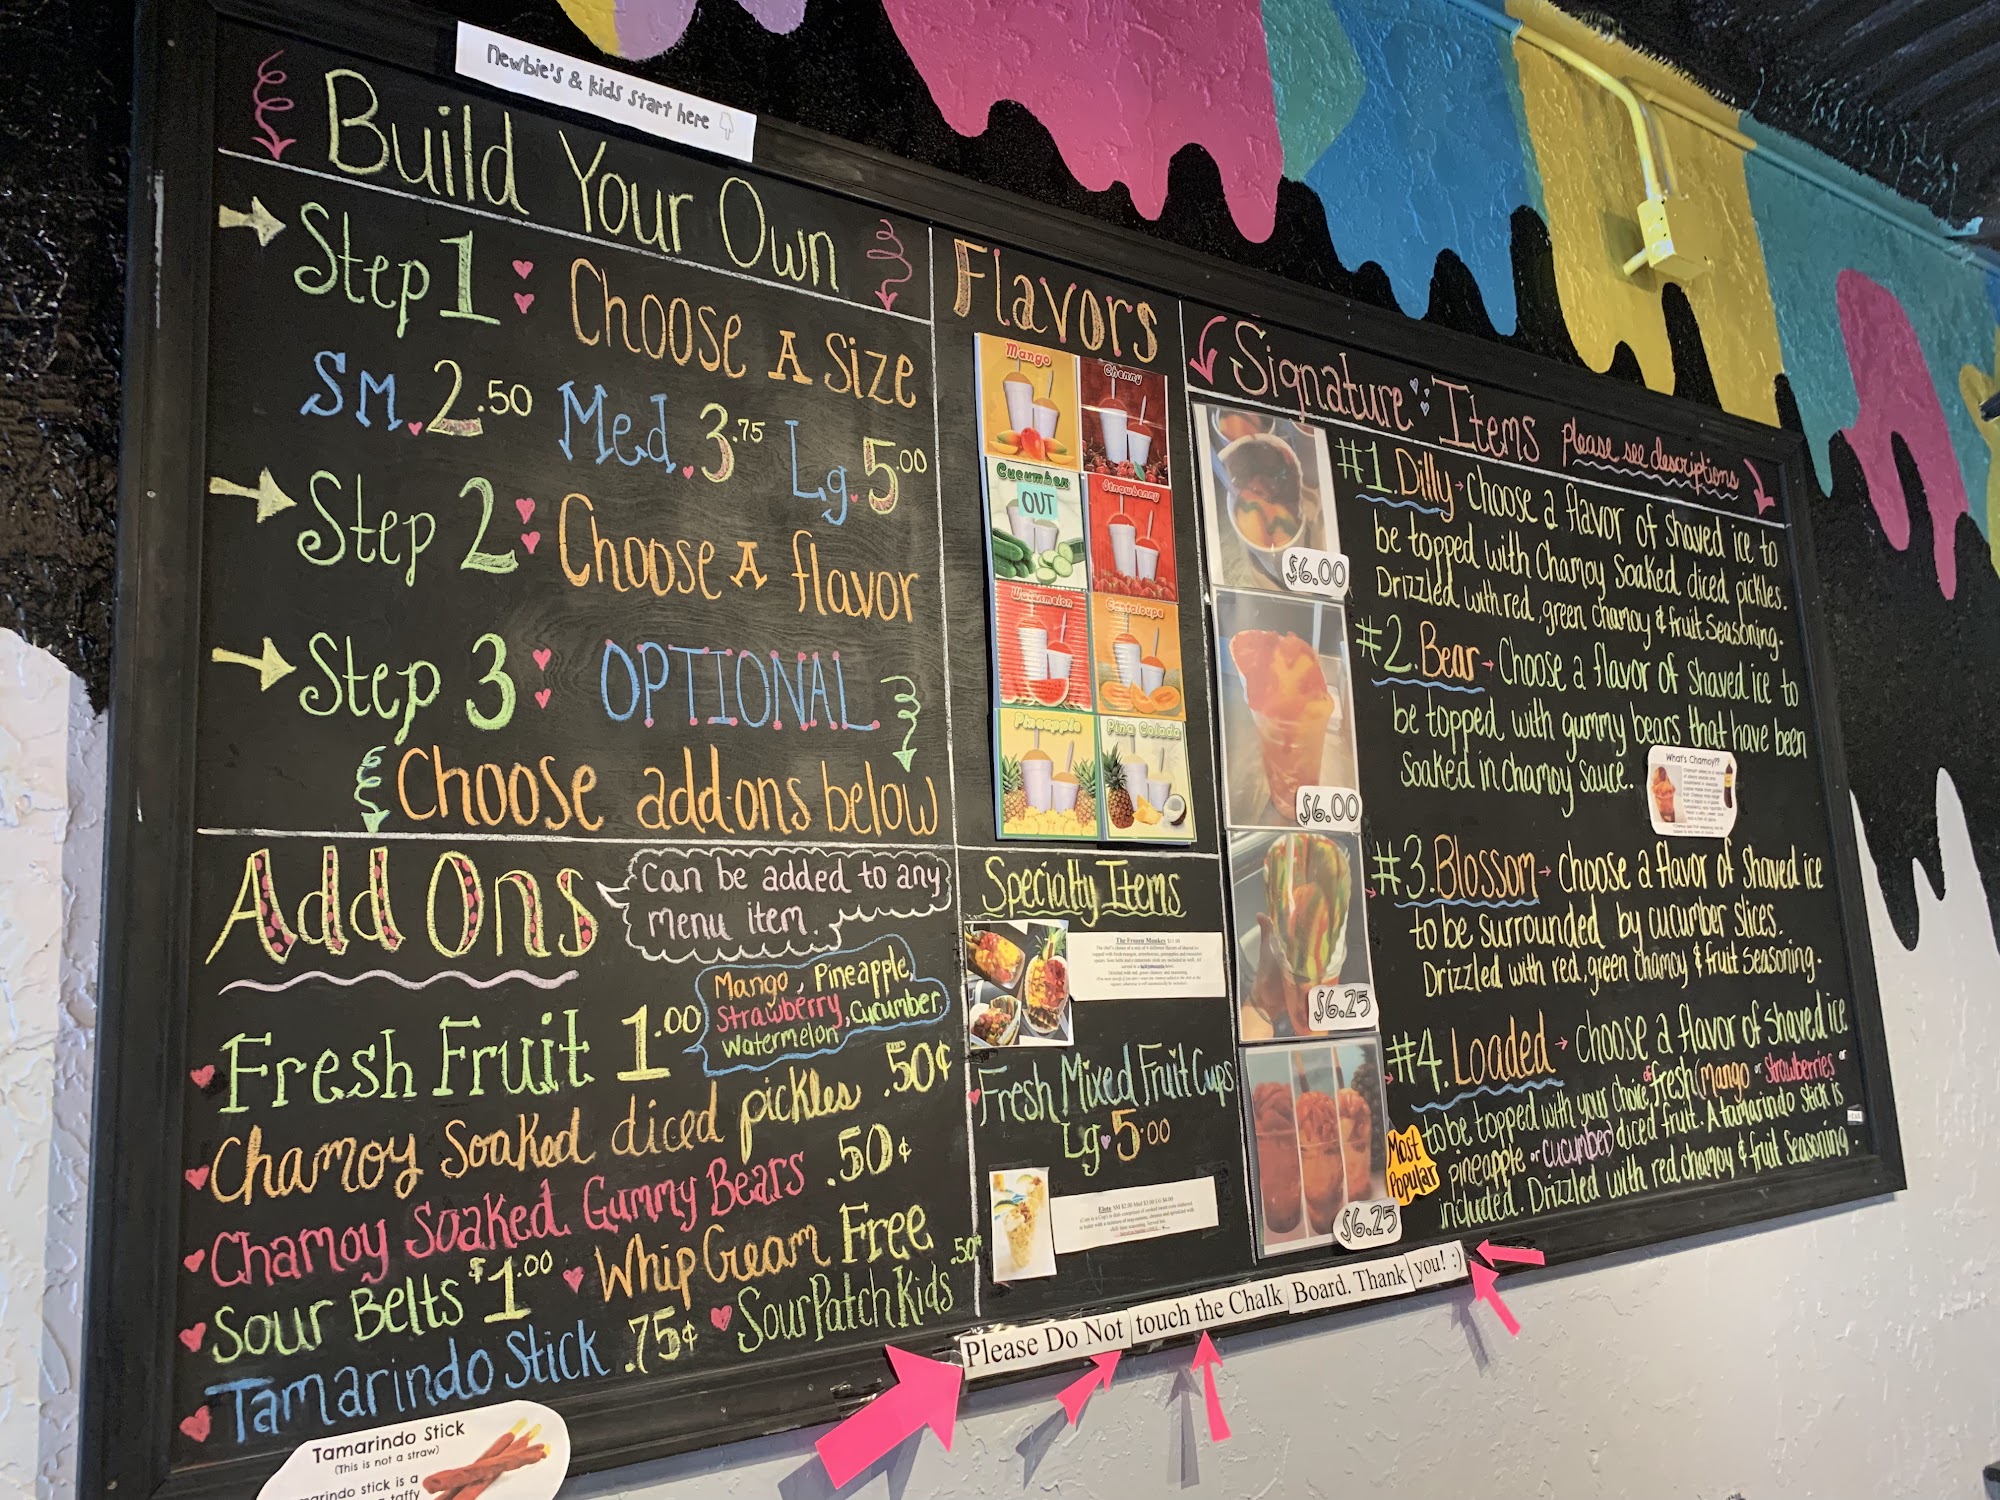 Newbie's & kids start here
Build Your Own
Step 1: Choose A Size
SM. 2.50 Med. 3.75 Lg. 5.00
Step 2: Choose A flavor
Step 3: OPTIONAL
Choose add-ons below
Add Ons
Can be added to any
menu item.
Fresh Fruit 1.00
Mango, Pineapple,
Strawberry, Cucumber,
Watermelon
Chamoy Soaked diced pickles .50¢
Chamoy Soaked Gummy Bears .50¢
Sour Belts $1.00
Whip Cream Free
Tamarindo Stick .75¢
Sour Patch Kids .50¢
Tamarindo Stick
(This is not a straw)
stick is a
taffy
Flavors
Mango
Cherry
Cucumber
OUT
Strawberry
Watermelon
Cantaloupe
Pineapple
Pina Colada
Specialty Items
The Frozen Monkey
Fresh Mixed Fruit Cups
Lg. 5.00
Elote SM $2.00 Med $3.00 LG $4.00
Signature Items please see descriptions
#1. Dilly Choose a flavor of Shaved ice to
be topped with Chamoy Soaked diced pickles.
Drizzled with red, green chamoy & fruit Seasoning.
$6.00
#2. Bear Choose a flavor of Shaved ice to
be topped with gummy bears that have been
Soaked in chamoy sauce.
$6.00
What's Chamoy??
#3. Blossom Choose a flavor of Shaved ice
to be surrounded by cucumber slices.
Drizzled with red, green chamoy & fruit Seasoning.
$6.25
#4. Loaded Choose a flavor of Shaved ice
to be topped with your choice of fresh (mango or strawberries or
pineapple or cucumber) diced fruit. A tamarindo stick is
included. Drizzled with red chamoy & fruit Seasoning.
Most
Popular
$6.25
Please Do Not touch the Chalk Board. Thank you! :)